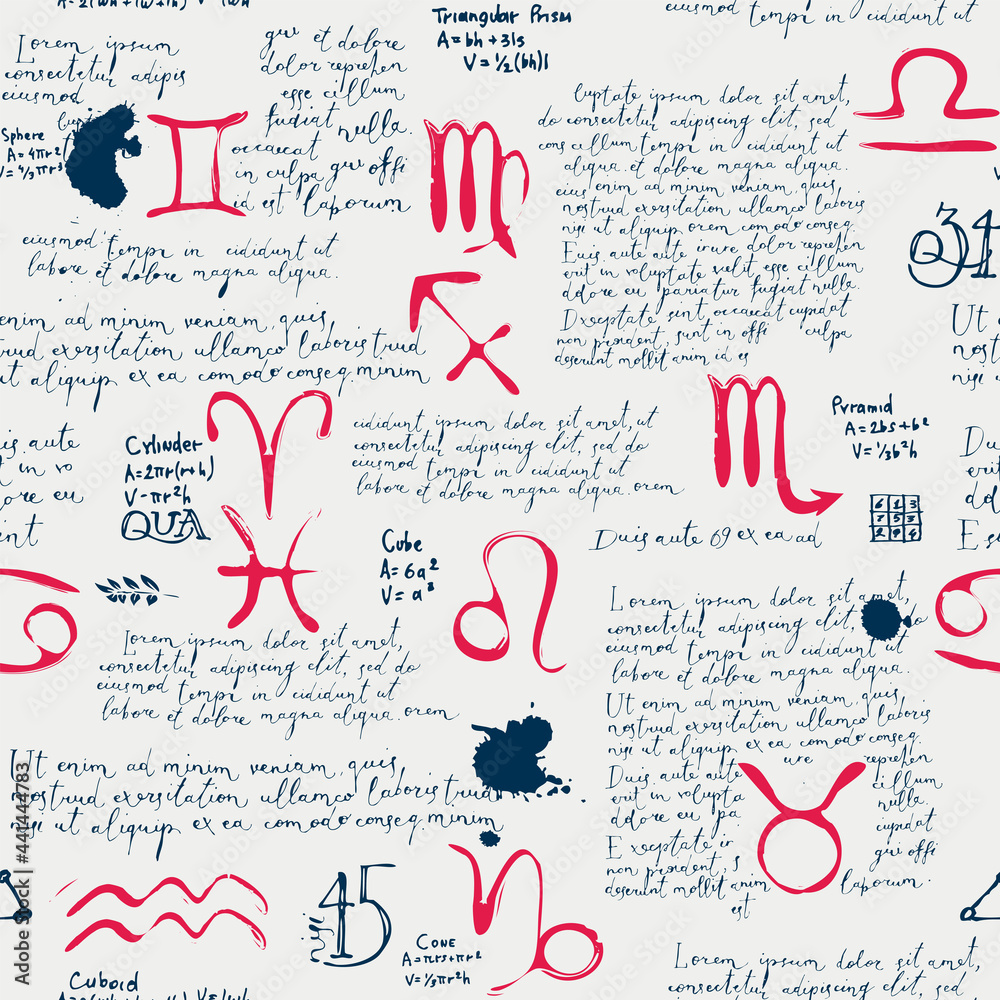 Triangular Prism
A=bh+3ls
V=½(bh)l
eiusmod tempi in cididunt ut
Lorem ipsum
consectetur adipis
eiusmod
qui et dolore
dolor reprehen
esse cillum
fugiat nulla.
occaecat
in culpa qui offi
id est laborum
Sphere
A=4πr²
V=⁴/₃πr³
eiusmod tempi in cididunt ut
labore et dolore magna aliqua.
enim ad minim veniam, quis
trud exersitation ullamco laboris trud
ut aliquip ex ea comodo conseq. minim
luptate ipsum dolor sit amet,
do consectetur adipiscing elit, sed
cons cillum tempi in cididunt ut
aliqua. et dolore magna aliqua.
eius enim ad minim veniam, quis
nostrud exersitation ullamco laboris
nisi ut aliquip orem comodo conseq.
Euis aute aute irure dolor reprehen
erit in voluptate velit esse cillum
dolore eu pariatur fugiat nulla.
Dxceptate sint occaecat cupidat
non proident, sunt in offi culpa
deserunt mollit anim id es
34
Ut
nost
nisi
is aute
t in vo
ore eu
int
Cylinder
A=2πr(r+h)
V-πr²h
QUA
cididunt, ipsum dolor sit amet, ut
consectetur adipiscing elit, sed do
eiusmod tempi in cididunt ut
labore et dolore magna aliqua. orem
Pyramid
A=2bs+b²
V=⅓b²h
6 1 3
7 5 3
2 9 3
Duis aute 69 ex ea ad
Duis
erit
dolore
E
Cube
A=6a²
V=a³
Lorem ipsum dolor sit amet,
consectetur adipiscing elit, sed do
eiusmod tempi in cididunt ut
labore et dolore magna aliqua. orem
Lorem ipsum dolor sit amet,
consectetur adipiscing elit, sed do
eiusmod tempi in cididunt ut
labore et dolore magna aliqua.
Ut enim ad minim veniam, quis
nostrud exersitation ullamco laboris
nisi ut aliquip ex ea comodo conseq.
Duis aute aute ure reprehen
erit in volupta cillum
dolore eu pa nulla.
Exceptate ir cupidat
non proident, s qui offi
deserunt mollit anim laborum.
est
Ut enim ad minim veniam, quis
nostrud exersitation ullamco laboris trud
nisi ut aliquip ex ea comodo conseq. minim
nisi
45
Cone
A=πrs+πr²
V=⅓πr²h
Cuboid
Lorem ipsum dolor sit amet,
consectetur adipiscing elit, sed do
Adobe Stock | #441444783
Adobe Stock